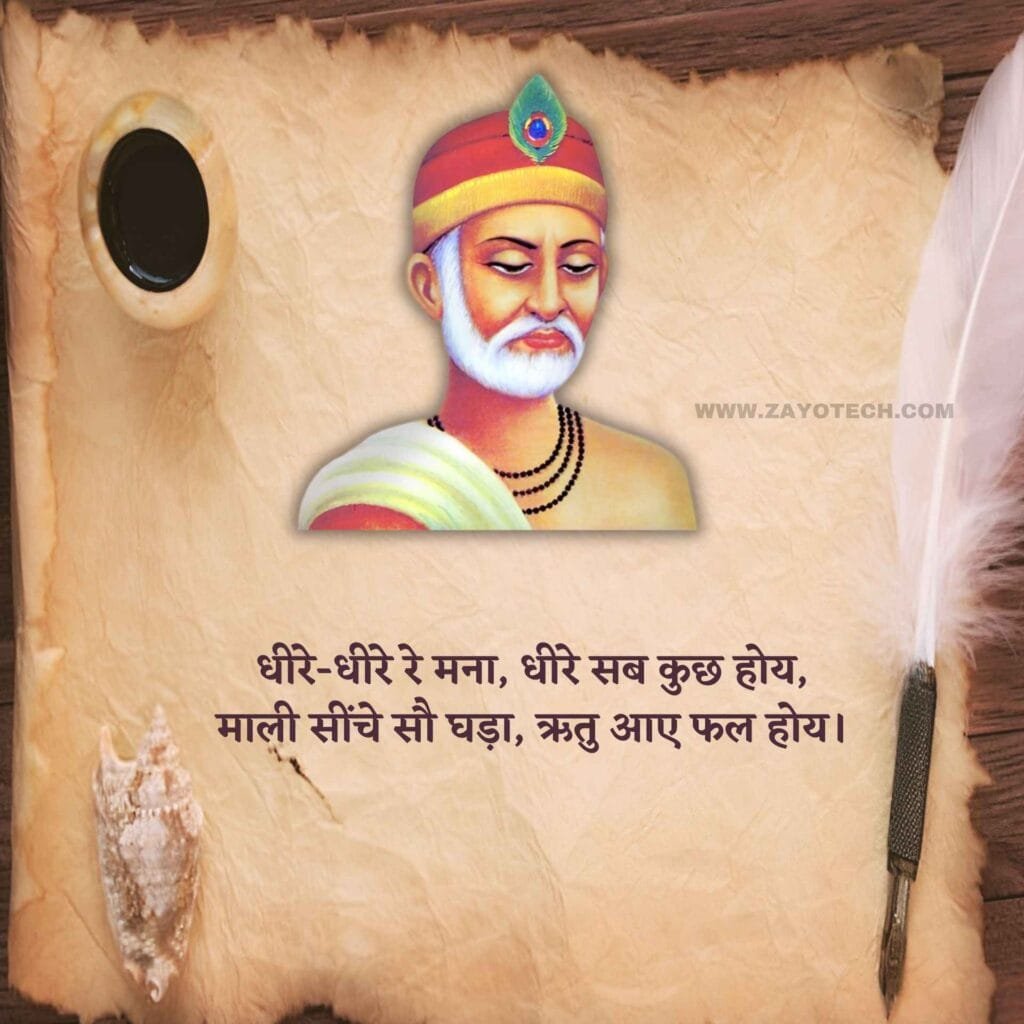 WWW.ZAYOTECH.COM
धीरे-धीरे रे मना, धीरे सब कुछ होय,
माली सींचे सौ घड़ा, ऋतु आए फल होय।